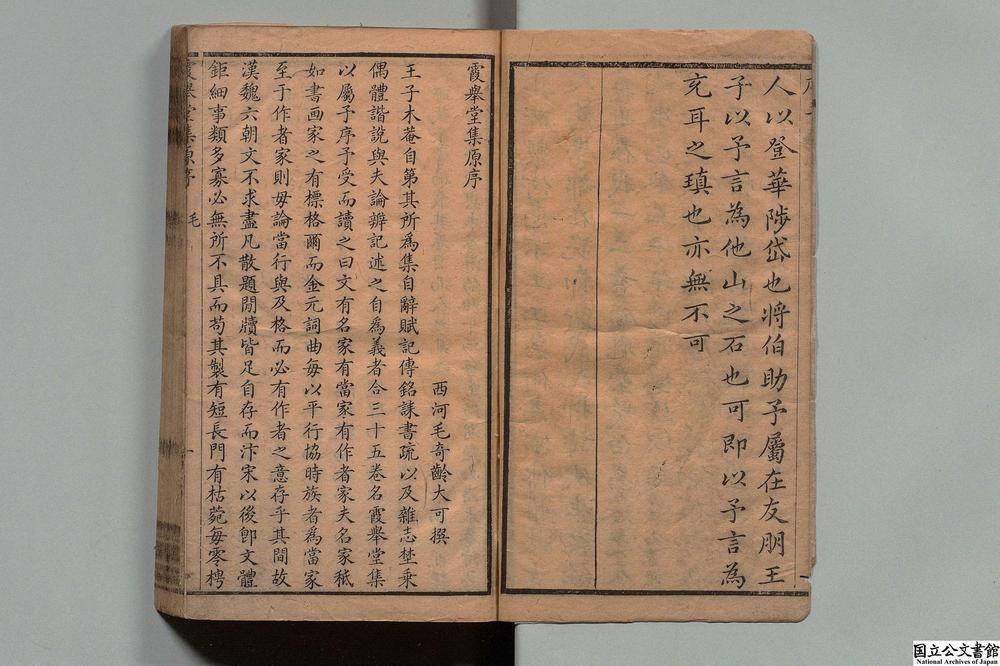 人以登華陟岱也將伯助予屬在友朋王
子以予言為他山之石也可即以予言為
充耳之瑱也亦無不可
霞舉堂集原序
西河毛奇齡大可撰
王子木菴自第其所為集自辭賦記傳銘誄書疏以及雜志埜乗
偶體諧說與夫論辨記述之自為義者合三十五卷名霞舉堂集
以屬予序予受而讀之曰文有名家有當家有作者家夫名家秪
如書画家之有標格爾而金元詞曲每以平行協時族者為當家
至于作者家則毋論當行與及格而必有作者之意存乎其間故
漢魏六朝文不求盡凡散題閒牘皆足自存而汴宋以後卽文體
鉅細事類多寡必無所不具而苟其製有短長門有枯菀每零樗
霞舉堂集原序
毛
一
国立公文書館
National Archives of Japan